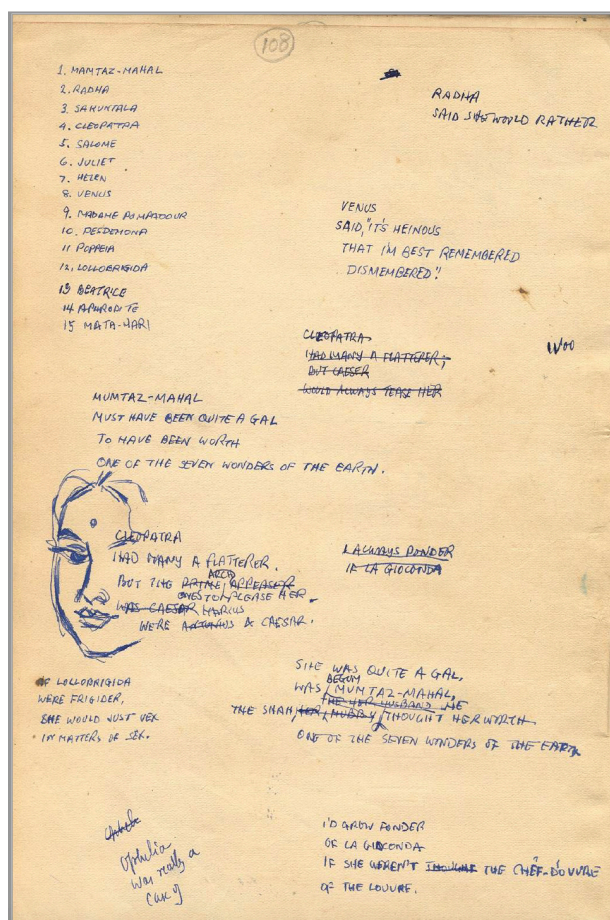 108
1. MAMTAZ-MAHAL
2. RADHA
3. SAKUNTALA
4. CLEOPATRA
5. SALOME
6. JULIET
7. HELEN
8. VENUS
9. MADAME POMPADOUR
10. DESDEMONA
11 POPPEIA
12. LOLLOBRIGIDA
13 BEATRICE
14 APHRODITE
15 MATA-HARI
RADHA
SAID SHE WOULD RATHER
VENUS
SAID, "IT'S HEINOUS
THAT I'M BEST REMEMBERED
DISMEMBERED"!
CLEOPATRA
HAD MANY A FLATTERER;
BUT CAESER
WOULD ALWAYS TEASE HER
MUMTAZ-MAHAL
MUST HAVE BEEN QUITE A GAL
TO HAVE BEEN WORTH
ONE OF THE SEVEN WONDERS OF THE EARTH.
CLEOPATRA
HAD MANY A FLATTERER.
ARCH
BUT THE PRIME APPEASER
ONES TO PLEASE HER
WAS CAESAR MARIUS
WERE & CAESAR.
I ALWAYS PONDER
IF LA GIOCONDA
IF LOLLOBRIGIDA
WERE FRIGIDER,
SHE WOULD JUST VEX
IN MATTERS OF SEX.
SHE WAS QUITE A GAL,
BEGUM
WAS MUMTAZ-MAHAL,
HER HUSBAND HE
THE SHAH, HER HUBBY, THOUGHT HER WORTH
ONE OF THE SEVEN WONDERS OF THE EARTH
Ophelia
was really a
case of
I'D GROW FONDER
OF LA GIOCONDA
IF SHE WEREN'T THE CHÊF-D'OUVRE
OF THE LOUVRE.